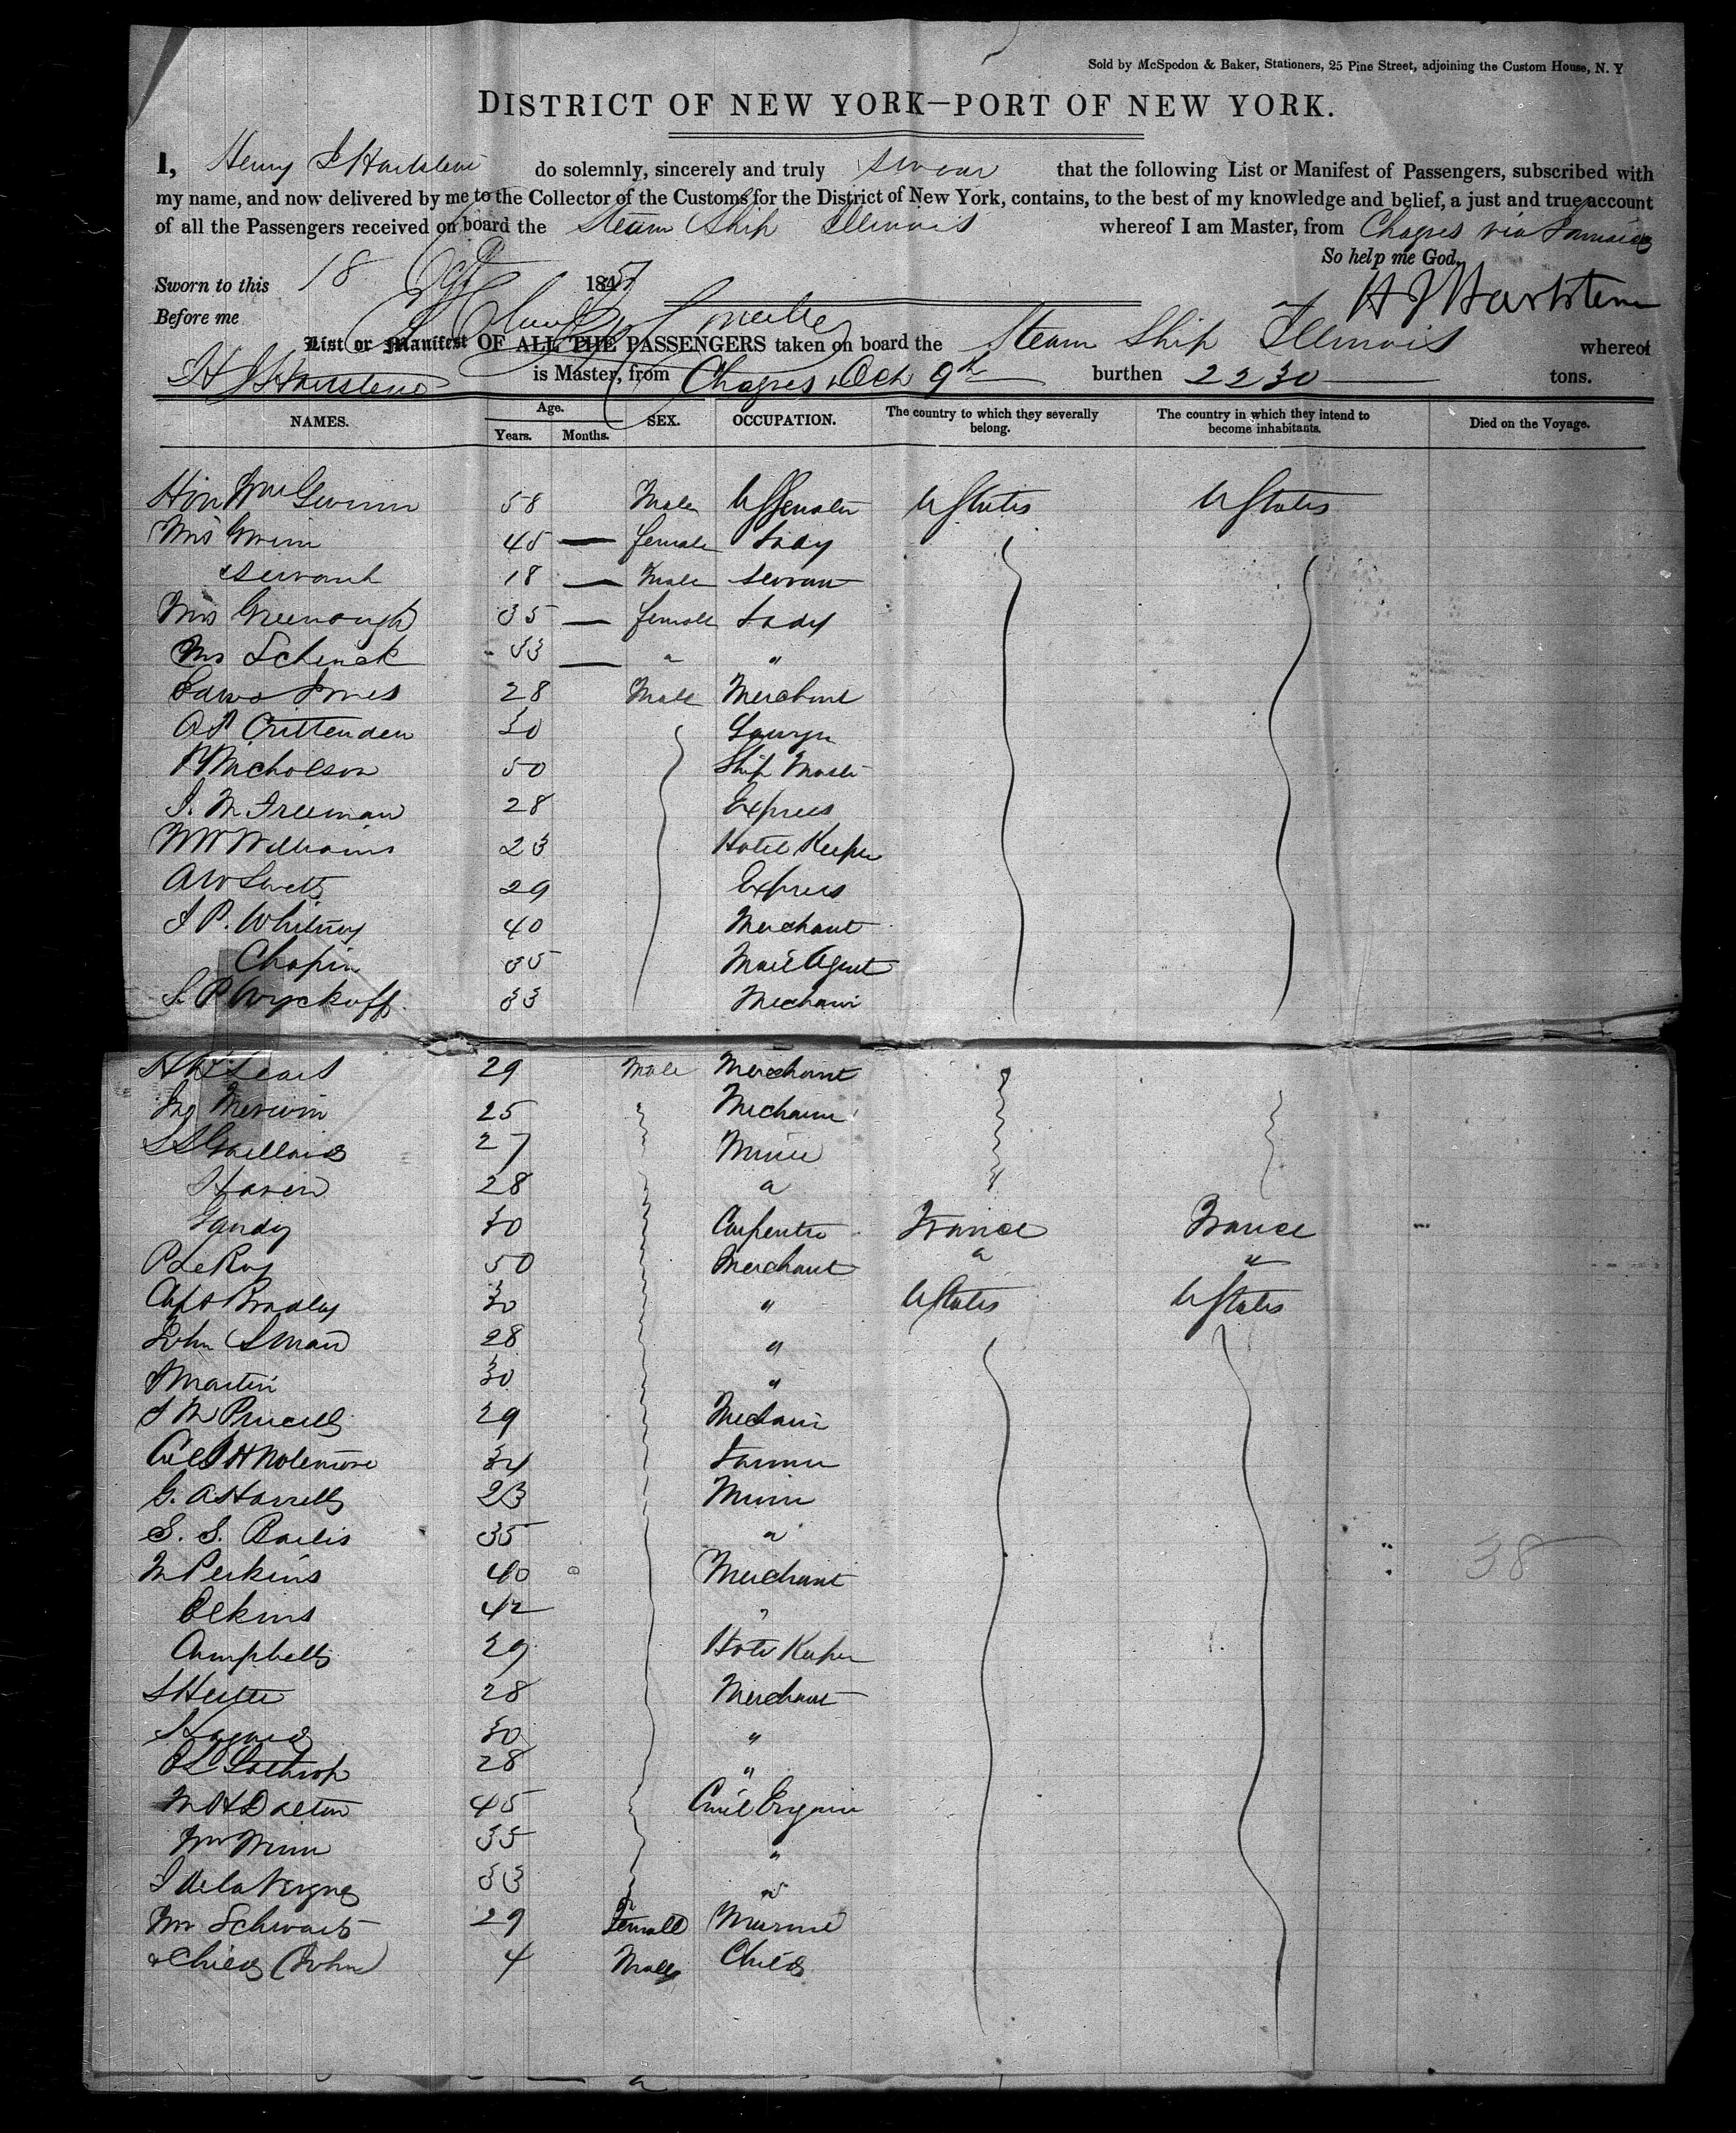 Sold by McSpedon & Baker, Stationers, 25 Pine Street, adjoining the Custom House, N. Y
DISTRICT OF NEW YORK—PORT OF NEW YORK.
I, Henry J Hartstene do solemnly, sincerely and truly swear that the following List or Manifest of Passengers, subscribed with
my name, and now delivered by me to the Collector of the Customs for the District of New York, contains, to the best of my knowledge and belief, a just and true account
of all the Passengers received on board the Steam Ship Illinois whereof I am Master, from Chagres via Jamaica
So help me God.
Sworn to this 18 Oct 185
H J Hartstene
Before me
List or Manifest OF ALL THE PASSENGERS taken on board the Steam Ship Illinois whereof
H J Hartstene is Master, from Chagres Oct 9th burthen 2230 tons.
NAMES. Age. Years. Months. SEX. OCCUPATION. The country to which they severally belong. The country in which they intend to become inhabitants. Died on the Voyage.
Hon Wm Gwinn 58 Male US Senator U States U States
Mrs Gwinn 45 — female Lady
servant 18 — Male servan
Mrs Greenough 35 — female Lady
Mrs Schenck 33 — " "
Edwd Jones 28 Male Merchant
A P Crittenden 30 Lawyer
Nicholson 50 Ship Master
J. M Freeman 28 Express
W W Williams 23 Hotel Keeper
A W Swett 29 Express
J P. Whitney 40 Merchant
Chapin 35 Mail Agent
S. P Wyckoff. 33 Mechanic
Sears 29 Male Merchant
Merwin 25 Mechanic
Gaillard 27 Miner
Haven 28 "
Gandy 30 Carpenter France France
P LeRoy 50 Merchant " "
Capt Bradley 30 " U States U States
John S Man 28 "
Martin 30 "
J M Purcell 29 Mechanic
34 Farmer
G. A Harrell 23 Miner
S. S. Bailis 35 "
M Perkins 40 Merchant 38
Elkins 42 "
Campbell 29 Hotel Keeper
28 Merchant
30 "
Lathrop 28 "
M H Dalton 45 Civil Engine
Mr Winn 35 "
J de la Vergne 33 "
Mrs Schwartz 29 Female
& Child (John) 4 Male Child